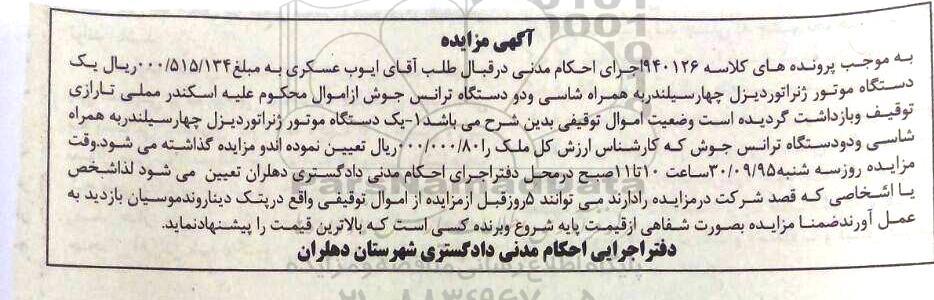 آگهی مزایده
به موجب پرونده های کلاسه ۹۴۰۱۲۶اجرای احکام مدنی درقبال طلب آقای ایوب عسکری به مبلغ۰۰۰/۵۱۵/۱۳۴ریال یک
دستگاه موتور ژنراتوردیزل چهارسیلندربه همراه شاسی ودو دستگاه ترانس جوش ازاموال محکوم علیه اسکندر مملی تارازی
توقیف وبازداشت گردیده است وضعیت اموال توقیفی بدین شرح می باشد۱-یک دستگاه موتور ژنراتوردیزل چهارسیلندربه همراه
شاسی ودودستگاه ترانس جوش که کارشناس ارزش کل ملک را۰۰۰/۰۰۰/۸۰ریال تعیین نموده اندو مزایده گذاشته می شود.وقت
مزایده روزسه شنبه۳۰/۰۹/۹۵ساعت ۱۰تا۱۱صبح درمحل دفتراجرای احکام مدنی دادگستری دهلران تعیین می شود لذاشخص
یا اشخاصی که قصد شرکت درمزایده رادارند می توانند ۵روزقبل ازمزایده از اموال توقیفی واقع درپتک دیناروندموسیان بازدید به
عمل آورندضمنا مزایده بصورت شفاهی ازقیمت پایه شروع وبرنده کسی است که بالاترین قیمت را پیشنهادنماید.
دفتراجرایی احکام مدنی دادگستری شهرستان دهلران
ParsNamadData
پایگاه اطلاع رسانی مناقصه و مزایده